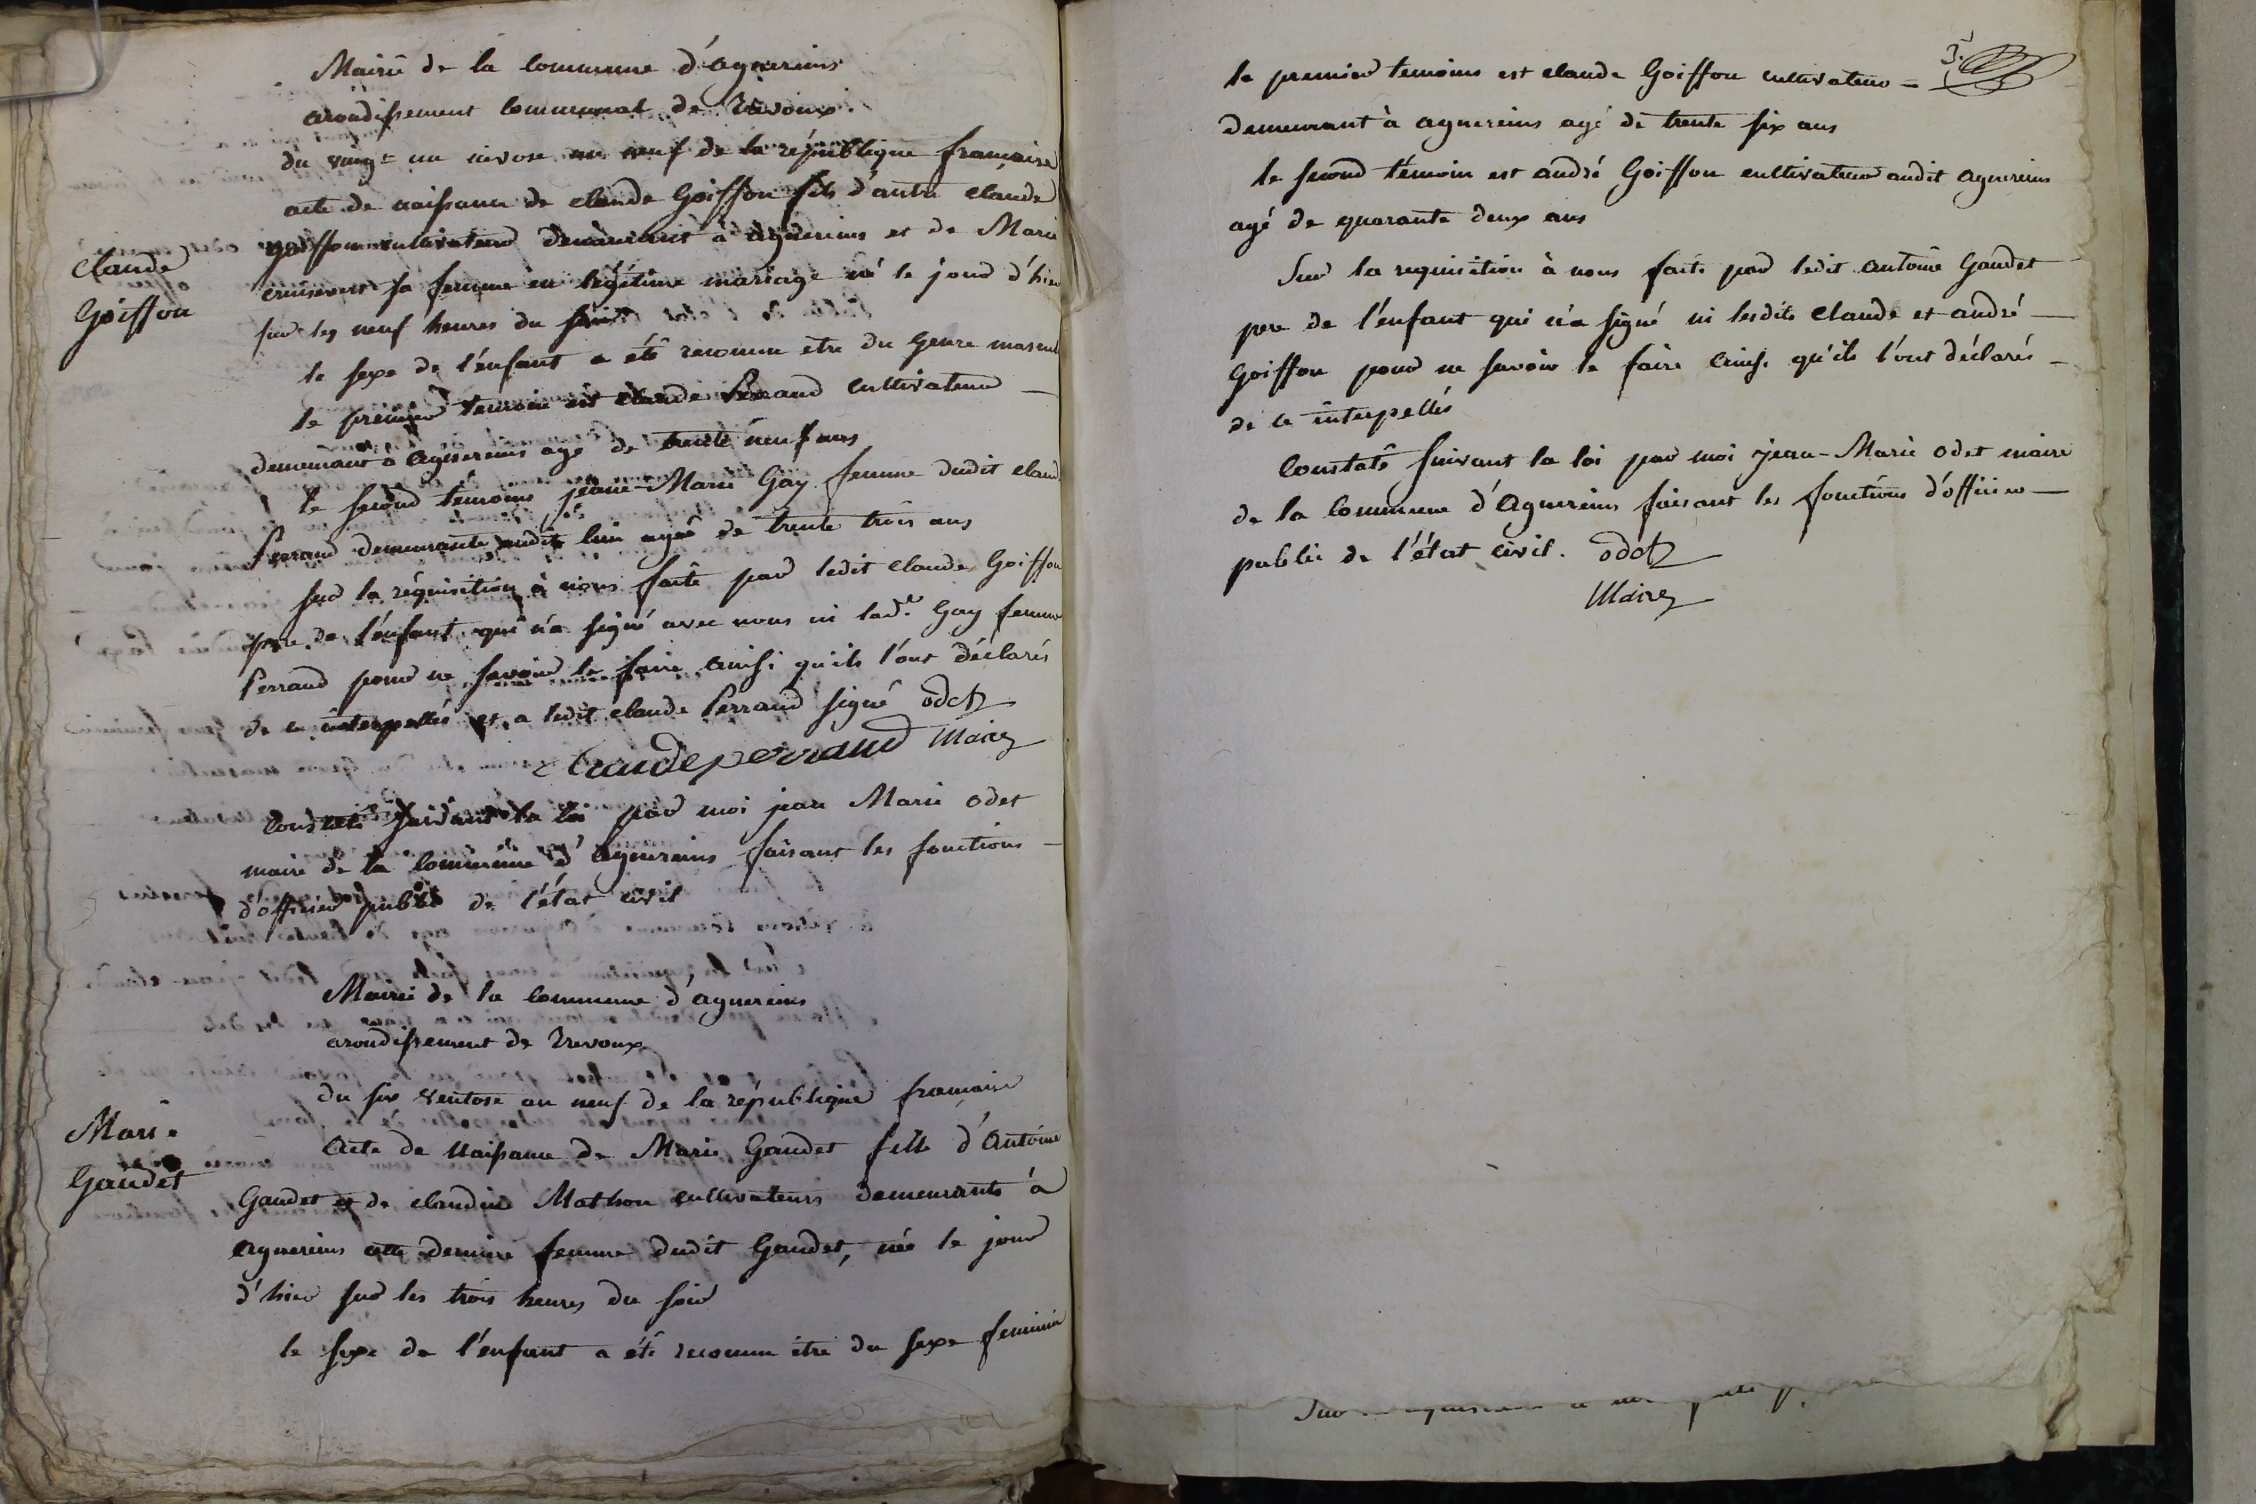 Mairie de la Commune d'agnereins
arondissement Communal de Trevoux
du vingt un nivose an neuf de la république francaise
acte de naissance de claude Goiffon fils d'autre claude
goiffon cultivateur demeurant à agnereins et de Marie
sa femme en légitime mariage né le jour d'hier
sur les neuf heures du soir
Claude
Goiffon
le sexe de l'enfant a été reconnu etre du genre mascul
le premier temoin est claude Perraud Cultivateur
demeurant à agnereins agé de trente neuf ans
le second temoins jeane-Marie Gay femme dudit claud
Perraud demeurante audit lieu agée de trente trois ans
sur la réquisition à nous faite par ledit claude Goiffon
pere de l'enfant qui n'a signé avec nous ni lad.e Gay femme
Perraud pour ne savoir le faire ainsi qu'ils l'ont déclarés
de ce interpellés et a ledit claude Perraud signé odet
claude perraud Maire
Constaté suivant la loi par moi jean Marie odet
maire de la Commune d'agnereins faisant les fonctions
d'officier public de l'état civil
Mairie de la Commune d'agnereins
arondissement de Trevoux
du six ventose an neuf de la république francaise
Marie
Gaudet
Acte de Naissance de Marie Gaudet fille d'Antoine
Gaudet et de claudine Mathon cultivateurs demeurants à
agnereins cette derniere femme dudit Gaudet, née le jour
d'hier sur les trois heures du soir
le sexe de l'enfant a été reconnu etre du sexe feminin
3
le premier temoins est claude Goiffon cultivateur
demeurant à agnereins agé de trente six ans
le second témoin est andré Goiffon cultivateur audit agnereins
agé de quarante deux ans
Sur la requisition à nous faite par ledit antoine Gaudet
pere de l'enfant qui n'a signé ni lesdits Claude et andré
Goiffon pour ne savoir le faire ainsi qu'ils l'ont déclarés
de ce interpellés
Constaté suivant la loi par moi jean-Marie odet maire
de la Commune d'Agnereins faisant les fonctions d'officier
public de l'état civil. odet
Maire